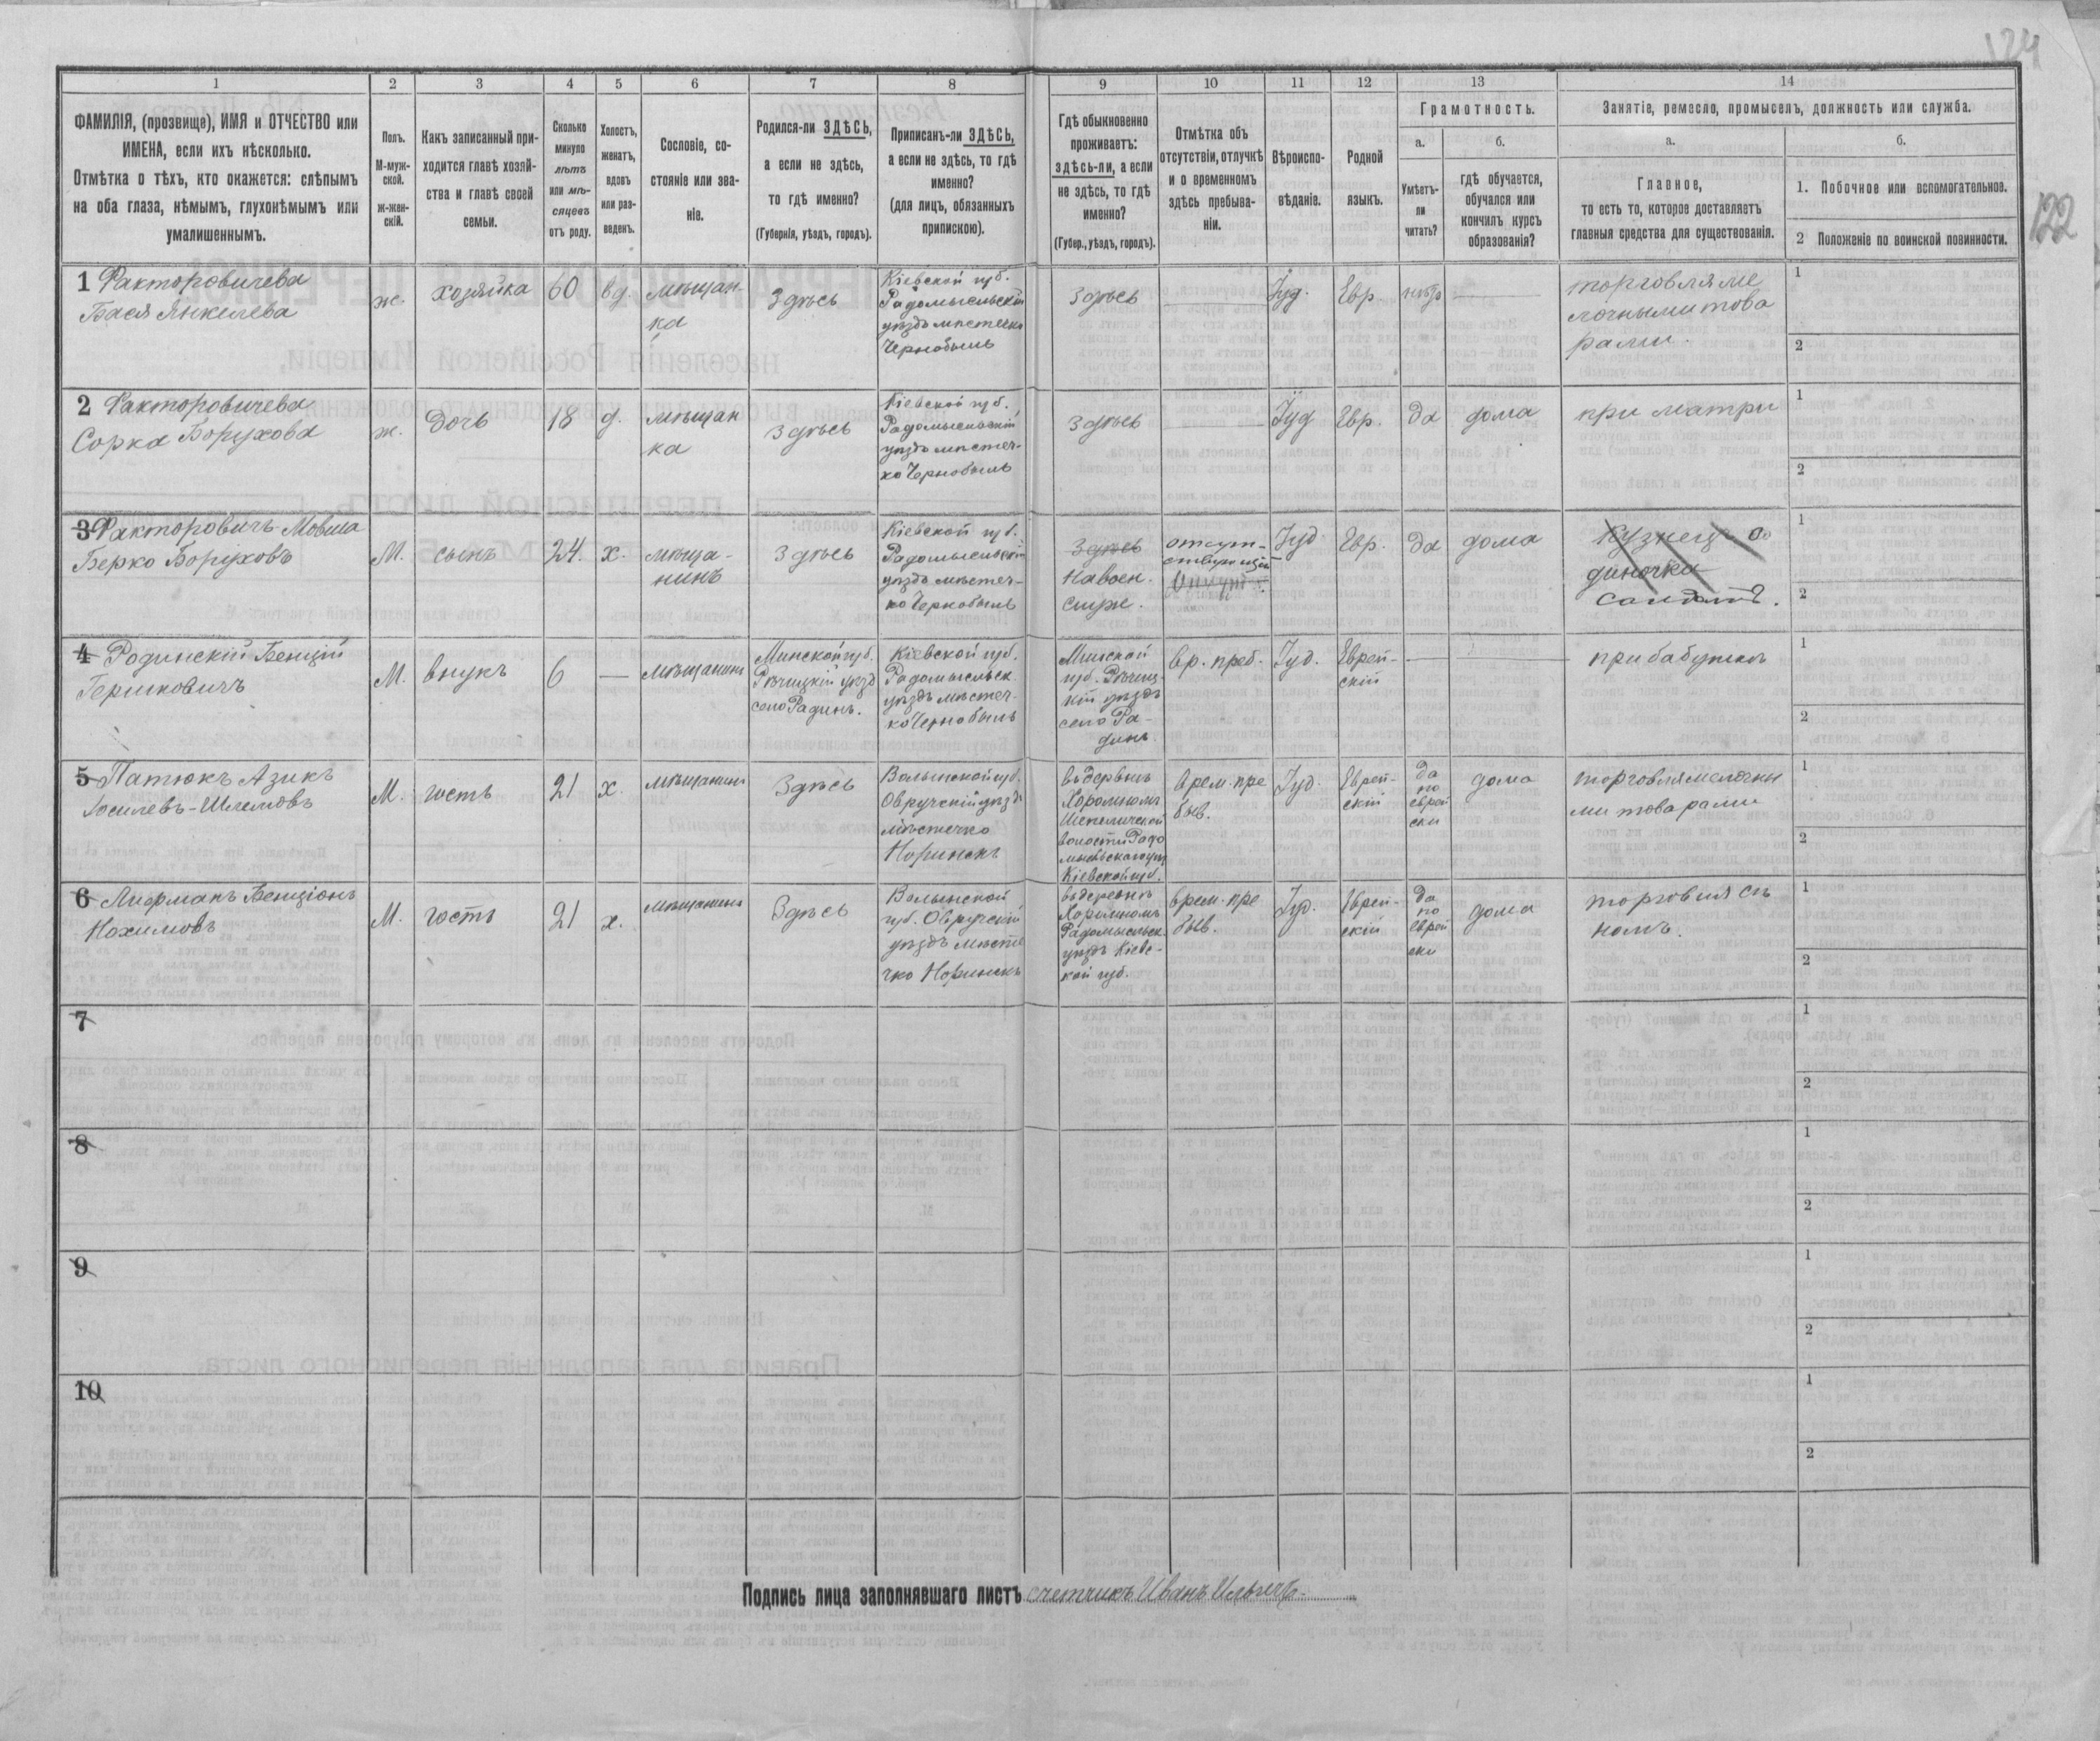 124
122
1 2 3 4 5 6 7 8 9 10 11 12 13 14
ФАМИЛІЯ, (прозвище), ИМЯ и ОТЧЕСТВО или
ИМЕНА, если ихъ нѣсколько.
Отмѣтка о тѣхъ, кто окажется: слѣпымъ
на оба глаза, нѣмымъ, глухонѣмымъ или
умалишеннымъ.
Полъ.
М-муж-
ской.
Ж-жен-
скій.
Какъ записанный при-
ходится главѣ хозяй-
ства и главѣ своей
семьи.
Сколько
минуло
лѣтъ
или мѣ-
сяцевъ
отъ роду.
Холостъ,
женатъ,
вдовъ
или раз-
веденъ.
Сословіе, со-
стояніе или зва-
ніе.
Родился-ли ЗДѢСЬ,
а если не здѣсь,
то гдѣ именно?
(Губернія, уѣздъ, городъ).
Приписанъ-ли ЗДѢСЬ,
а если не здѣсь, то гдѣ
именно?
(для лицъ, обязанныхъ
припискою).
Гдѣ обыкновенно
проживаетъ:
здѣсь-ли, а если
не здѣсь, то гдѣ
именно?
(Губер., уѣздъ, городъ).
Отмѣтка объ
отсутствіи, отлучкѣ
и о временномъ
здѣсь пребыва-
ніи.
Вѣроиспо-
вѣданіе.
Родной
языкъ.
Грамотность.
а.
Умѣетъ-
ли
читать?
б.
гдѣ обучается,
обучался или
кончилъ курсъ
образованія?
Занятіе, ремесло, промыселъ, должность или служба.
а.
Главное,
то есть то, которое доставляетъ
главныя средства для существованія.
б.
1. Побочное или вспомогательное.
2 Положеніе по воинской повинности.
1 Факторовичева
Бася Янкелева
ж.
хозяйка
60
вд.
мѣщан-
ка
Здѣсь
Кіевской губ.
Радомысльскій
уѣздъ мѣстечко
Чернобыль
Здѣсь
Іуд.
Евр.
нѣтъ
торговля ме
лочными това
рами.
1
2
2 Факторовичева
Сорка Борухова
ж.
дочь
18
д.
мѣщан
ка
Здѣсь
Кіевской губ.
Радомысльскій
уѣздъ мѣстеч-
ко Чернобыль
Здѣсь
Іуд
Евр.
да
дома
при матри
1
2
3 Факторовичъ Мовша
Берко Боруховъ
М.
сынъ
24.
х.
мѣща-
нинъ
Здѣсь
Кіевской губ.
Радомысльскій
уѣздъ мѣстеч-
ко Чернобыль
Здѣсь
На воен.
служ.
отсут-
ствующій
Іуд
Евр.
да
дома
Кузнецъ о
диночка
солдатъ.
1
2
4 Родинскій Бенцій
Гершковичъ
М.
внукъ
6
мѣщанинъ
Минской губ.
Рѣчицкій уѣздъ
село Радинъ.
Кіевской губ.
Радомысльск
уѣздъ мѣстеч-
ко Чернобыль
Минской
губ. Рѣчиц-
кій уѣздъ
село Ра-
динъ.
вр. преб.
Іуд.
Еврей-
скій
при бабушкѣ
1
2
5 Патюкъ Азикъ
Іосилевъ-Шлемовъ
М.
гость
21
х.
мѣщанинъ
Здѣсь
Волынской губ.
Овручскій уѣздъ
мѣстечко
Норинскъ
въ деревнѣ
Хоромномъ
Шепеличской
волости Радо
мысльскаго уѣз
Кіевской губ.
врем. пре
быв.
Іуд.
Еврей-
скій
да
по
еврей
ски
дома
торговля мелочны
ми товарами
1
2
6 Лиерманъ Бенціонъ
Нохимовъ
М.
гость
21
х.
мѣщанинъ
Здѣсь
Волынской
губ. Овручскій
уѣздъ мѣсте
чко Норинскъ
въ деревнѣ
Хоромномъ
Радомысльск
уѣздъ Кіевс-
кой губ.
врем. пре
быв.
Іуд.
Еврей-
скій
да
по
еврей
ски
дома
торговля съ
1
2
7
1
2
8
1
2
9
1
2
10
1
2
Подпись лица заполнявшаго листъ счетчикъ Иванъ